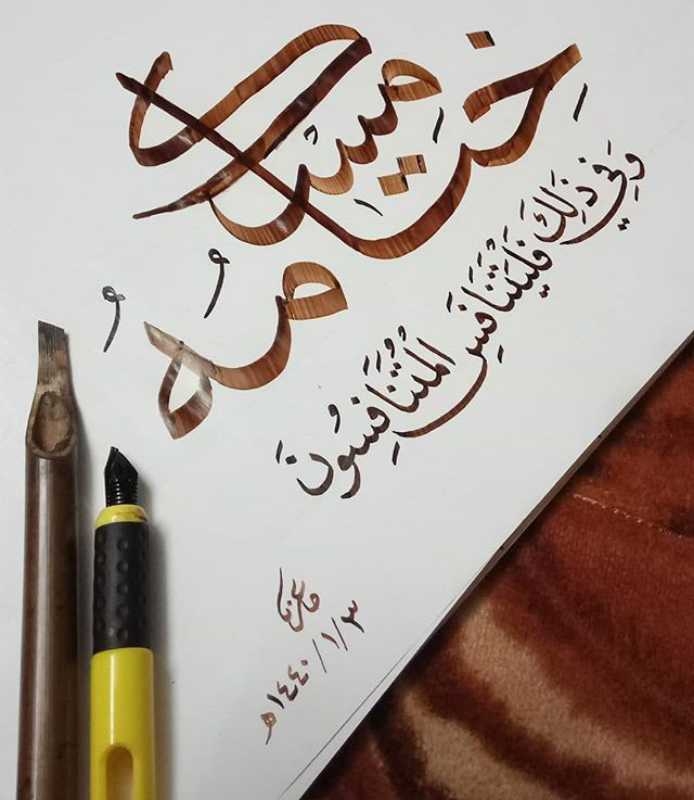 خِتَامُهُ مِسْكٌ
وَفِي ذَلِكَ فَلْيَتَنَافَسِ الْمُتَنَافِسُونَ
٣/١/١٤٤٠هـ